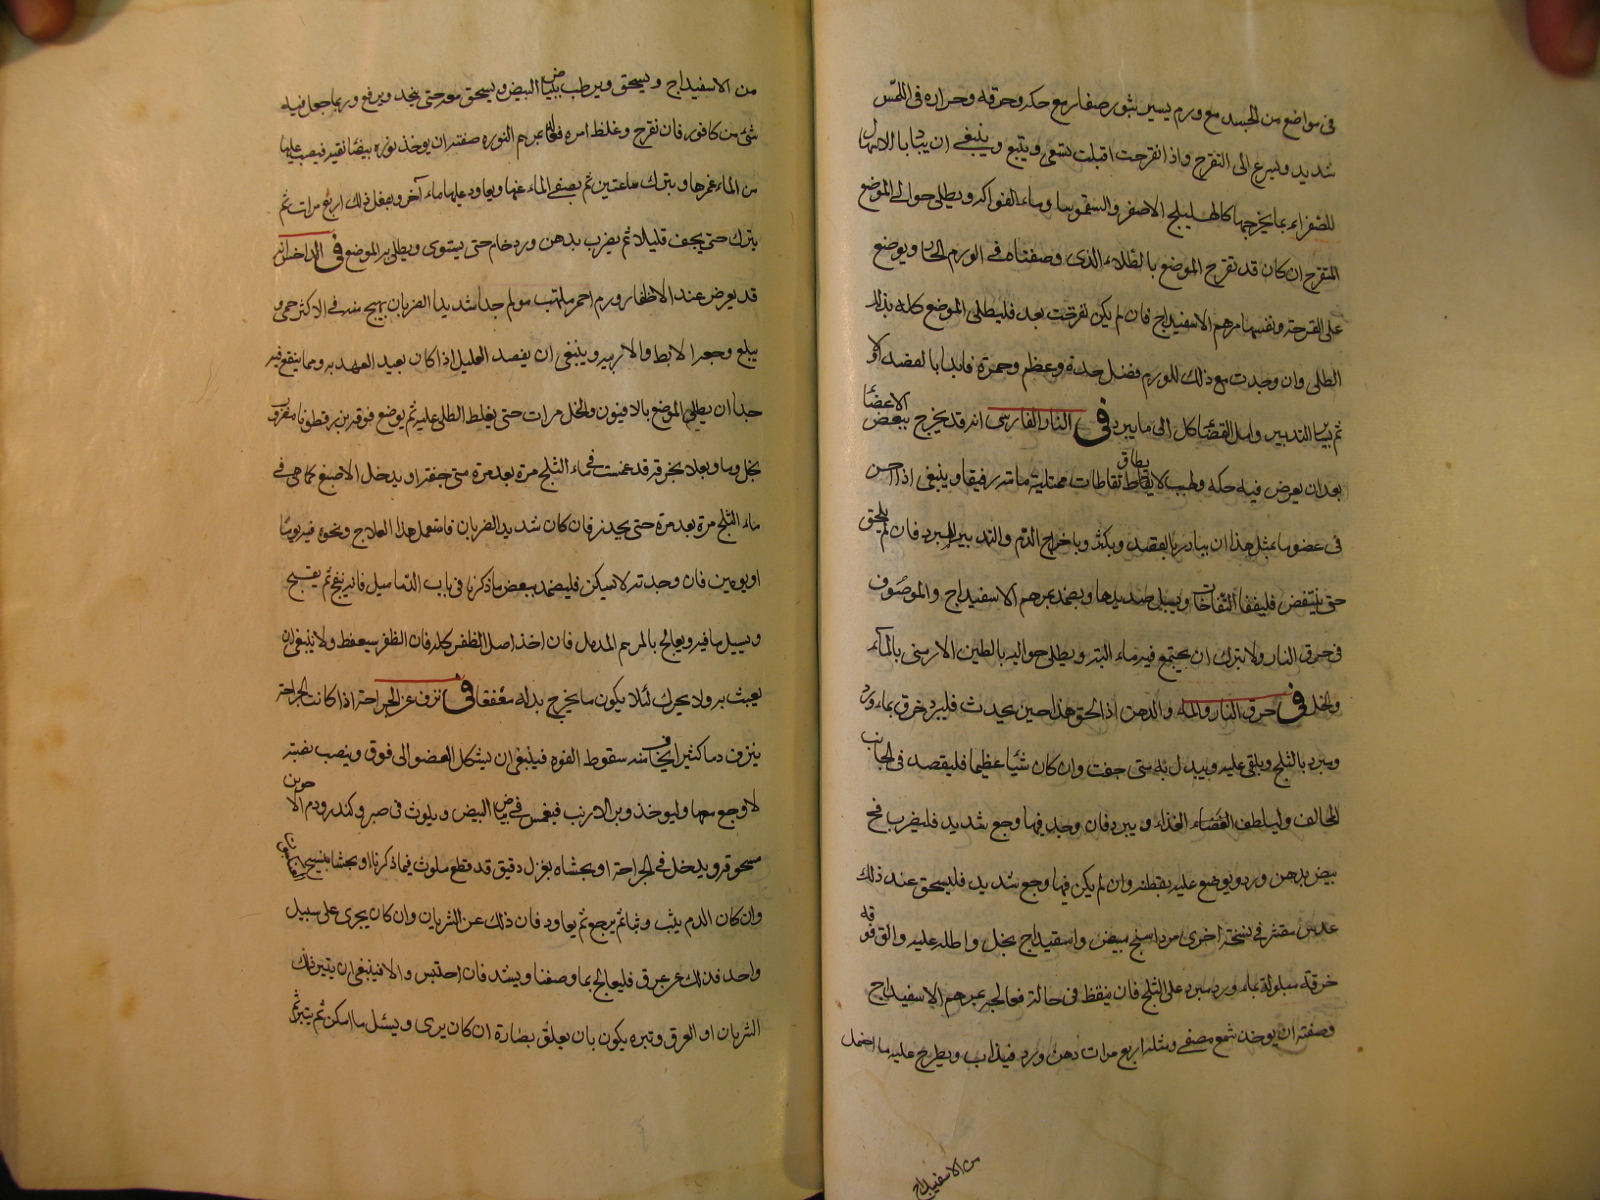 في مواضع من الجسد مع ورم يسير بثور صغار مع حكه وحرقه وحراره في اللمس
شديد ويسرع الى التقرح واذا تقرحت اقبلت تسعى وتتبع وينبغي ان يبادر بالاسهال
للصفراء بما يخرجها كالهليلج الاصفر والسقمونيا وماء الفواكه ويطلى حوالي الموضع
المتقرح ان كان قد تقرح الموضع بالطلاء الذي وصفناه في الورم الحار ويوضع
على القرحة ونفسها مرهم الاسفيداج فان لم يكن تقرحت بعد فليطلى الموضع كله بذلك
الطلى وان وجدت مع ذلك للورم فضل حدة وعظم وحمرة فابدا بالفصد اولا
ثم بباقي التدبير وامل الغذا كل الى ما يبرد في النار الفارسي انه قد يخرج ببعض الاعضا
بعد ان يعرض فيه حكه ولهيب لا يطاق نفاطات ممتلية ماء رقيقا وينبغي اذا احس
في عضو ما بمثل هذا ان يبادر بالفصد ويكثر وباخراج الدم والتدبير المبرد فان لم يلحق
حتى يتنفض فليفقا النفاخات ويسيل صديدها ويضمد بمرهم الاسفيداج والموصوف
في حرق النار ولا يترك ان يجتمع فيه ماء البتة ويطلى حواليه بالطين الارمني بالماء
والخل في حرق النار والماء والدهن اذا لحق هذا حين يحدث فليبرد خرق بماء ورد
ومبرد بالثلج ويلقى عليه ويبدل به متى جفت وان كان شيا عظيما فليفصد في الجانب
المخالف وليلطف الغذاء ويبرد فان وجد فيها وجع شديد فليضرب مح
بيض بدهن ورد ويوضع عليه بقطنه وان لم يكن فيها وجع شديد فليسحق عند ذلك
عدس مقشر في نسخة اخرى مرداسنج مبيض واسفيداج بخل واطله عليه والق فوقه
خرقة مبلولة بماء ورد مبرد على الثلج فان تنفط في حالة فعالجه بمرهم الاسفيداج
وصفته ان يوخذ شمع مصفى ومثله اربع مرات دهن ورد فيذاب ويطرح عليه ما احتمل
من الاسفيداج
من الاسفيداج ويسحق ويرطب ببياض البيض ويسحق معه حتى يتحد ويرفع وربما جعل فيه
شئ من كافور فان تقرح وغلظ امره فعالجه بمرهم النوره صفته ان يوخذ نوره بيضا نقيه فيصب عليها
من الماء غمرها ويترك ساعتين ثم يصفى الماء عنها ويعاود عليها ماء آخر ويفعل ذلك اربع مرات ثم
يترك حتى يجف قليلا ثم يضرب بدهن ورد خام حتى يستوى ويطلى به الموضع في الداخس انه
قد يعرض عند الاظفار ورم احمر ملتهب مولم جدا شديد الضربان يهيج منه في الاكثر حمى و
يبلغ وجعه الابط والاربيه وينبغي ان يفصد العليل اذا كان بعيد العهد به ومما ينفع فيه
جدا ان يطلى الموضع بالافيون والخل مرات حتى يغلظ الطلى عليه ثم يوضع فوقه بزر قطونا مضروب
بخل وما ويعلا بخرقه قد غمست في ماء الثلج مرة بعد مرة متى جفت او يدخل الاصبع كما هي في
ماء الثلج مرة بعد مرة حتى يخدر فان كان شديد الضربان فاستعمل هذا العلاج ونحوه فيه يوما
او يومين فان وجدته لا يسكن فليضمد ببعض ما ذكرنا في باب الدماميل فانه ينضج ثم يفتح
ويسيل ما فيه ويعالج بالمرهم المدمل فان اخذ اصل الظفر كله فان الظفر سيسقط ولا ينبغي ان
يعبث به ولا يحرك لئلا يكون ما يخرج بدله معقفا في نزف عن الجراحة اذا كانت الجراحة
ينزف دما كثيرا يخاف منه سقوط القوه فينبغي ان يشكل العضو الى فوق وينصب نصبته
لا وجع معها وليوخذ وبر الارنب فيغمس في بياض البيض ويلوث في صبر وكندر ودم الاخوين
مسحوقه ويدخل في الجراحة او يحشاه بغزل دقيق قد قطع ملوث فيما ذكرنا او يحشا بنسيج
وان كان الدم يثب وثبا ثم يرجع ثم يعاود فان ذلك عن الشريان وان كان يجرى على سبيل
واحد فذلك عن عرق فليعالج بما وصفنا ويشد فان احتبس والا فينبغي ان يتبين ذلك
الشريان او العرق وتبره يكون بان يعلق بصنارة ان كان يرى ويسئل ما امكن ثم يبتر